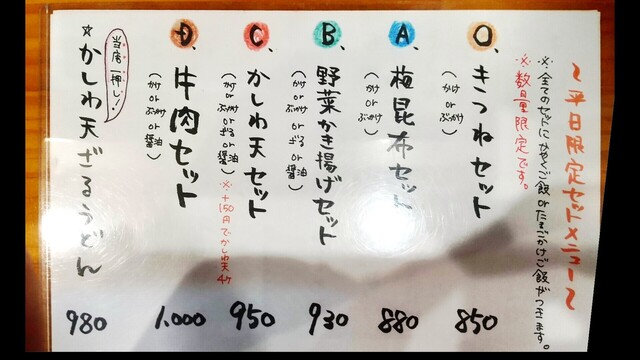 ～平日限定セットメニュー～
※全てのセットにかやくご飯orたまごかけご飯がつきます。
※数量限定です。
O、きつねセット
(かけorぶっかけ)
850
A、梅昆布セット
(かけorぶっかけ)
880
B、野菜かき揚げセット
(かけorぶっかけorざるor醤油)
930
C、かしわ天セット
(かけorぶっかけorざるor醤油)
※+150円でかしわ天4ケ
950
D、牛肉セット
(かけorぶっかけor醤油)
1.000
当店一押し!
☆かしわ天ざるうどん
980